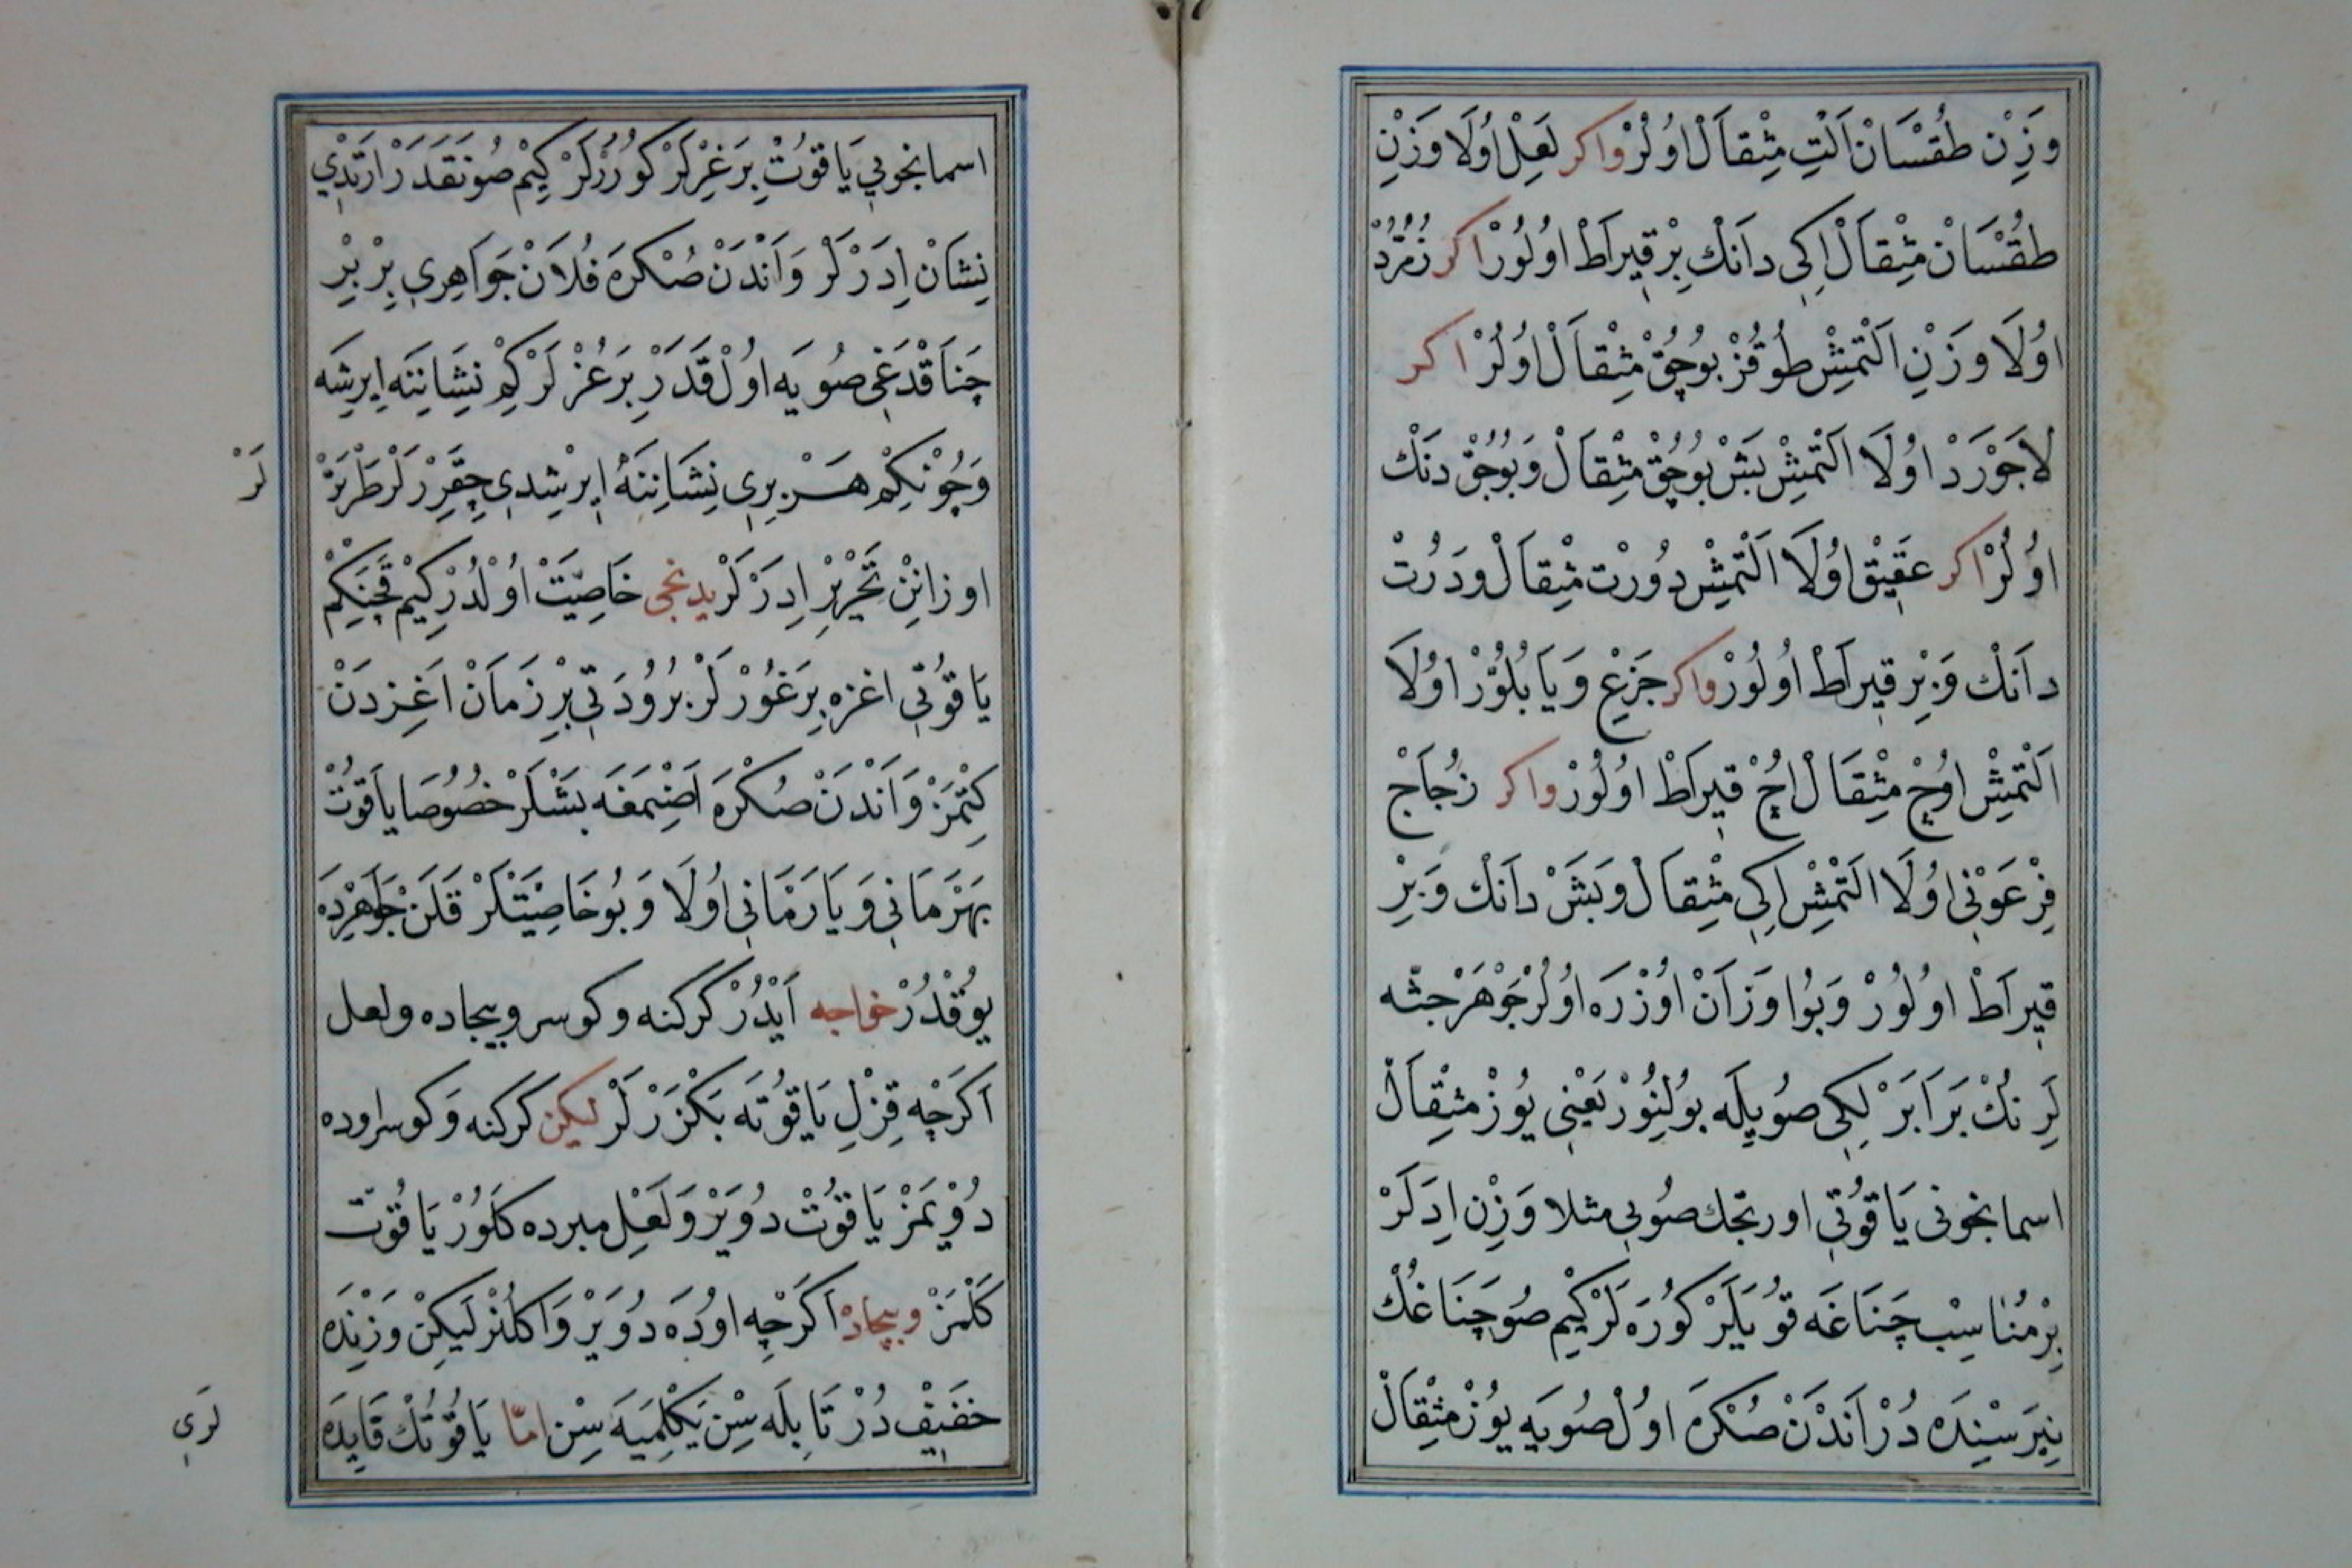 وَزِنْ طُقْسَانْ اَلْتِ مِثْقَالْ اُولُرْ واكر لَعِلْ اُولَا وَزْنِ
طُقْسَانْ مِثْقَالْ اِكِي دَانْكْ بِرْ قِيرَاطْ اُولُورْ اكر زُمُرُّدْ
اوُلَا وَزْنِ اَلْتَمِشْ طُوقُزْ بُوچُقْ مِثْقَالْ اوُلُرْ اكر
لَاجَوْرَدْ اوُلَا اَلْتَمِشْ بَشْ بُوچُقْ مِثْقَالْ وَبُوچُقْ دَنْكْ
اوُلُرْ اكر عَقِيقْ اوُلَا اَلْتَمِشْ دُورْتْ مِثْقَالْ وَدُرْتْ
دَانْكْ وَبِرْ قِيرَاطْ اُولُورْ واكر جَزِعْ وَيَا بُلُوَّرْ اوُلَا
اَلْتَمِشْ اوُچْ مِثْقَالْ اُچْ قِيرَاطْ اوُلُورْ واكر زُجَاجْ
فِرْعَوْنِي اوُلَا اَلْتَمِشْ اِكِي مِثْقَالْ وَبَشْ دَانْكْ وَبِرْ
قِيرَاطْ اوُلُورْ وَبُو اوَزَانْ اوُزْرَه اوُلُرْ جَوْهَرْ جثّه
لَرِنُكْ بَرَابَرْلِكِي صُويِلَه بُولِنُورْ يَعْنِي يُوزْ مِثْقَالْ
اسمانجونى يَاقُوتِي اورتجك صُويِى مثلا وَزِنْ اِدَرْلَرْ
بِرْ مُنَاسِبْ چَنَاغَه قُويَلَرْ كُورَه لَرْ كِيمْ صُو چَنَاغُكْ
نِيَرَسْنِدَه دُرْ اَنْدَنْ صُكْرَه اوُلْ صُويَه يُوزْ مِثْقَالْ
اسمانجوني يَاقُوتْ بِرَغِرْلَرْ كُورُرْلَرْ كِيمْ صُونَقَدَرْ اَرْتَدِي
نِشَانْ اِدَرْلَرْ وَاَنْدَنْ صُكْرَه فُلَانْ جَوَاهِرِي بِرْ بِرْ
چَنَاقْدَغِى صُويَه اوُلْ قَدَرْ بِرَغُرْلَرْ كِمْ نِشَانِنَه اِيرِشَه
وَچُونْكِمْ هَرْ بِرِي نِشَانِنَه اِيرْشِدِي چِقَرِرْلَرْ طَرْتَرْ
لَرْ
اوزانِنْ تَحْرِيرْ اِدَرْلَرْ يدنجى خَاصِيَّتْ اوُلْدُرْ كِيمْ قَچَنْكِمْ
يَاقُوتِي اغزه بِرَغُورْلَرْ بُرُودَتِي بِرْ زَمَانْ اَغِزدَنْ
كِتْمَزْ وَاَنْدَنْ صُكْرَه اَصِنْمَغَه بَشْلَرْ خُصُوصَا يَاقُوتْ
بَهْرَمَانِي وَيَا رُمَّانِي اوُلَا وَبُو خَاصِيَّتْلَرْ قَلَنْ جَوَاهِرْدَه
يُوقْدُرْ خواجه اَيْدُرْ كركنه وكوسر وبيجاده ولعل
اَكَرْچِه قِزْلِ يَاقُوتَه بَكْزَرْلَرْ ليكن كركنه وَكوسر اوده
دُويْمَزْ يَاقُوتْ دُويَرْ وَلَعِلْ مبرده كَلُورْ يَاقُوتْ
كَلْمَزْ وبيجاده اَكَرْچِه اوُدَه دُويَرْ وَاكلُنرْ لَيكِنْ وَزْنِدَه
خَفِيفْ دُرْ تَا بِلَه سِنْ يَكِلْمِيَه سِنْ امّا يَاقُوتُكْ فَايِدَه
لَرِي